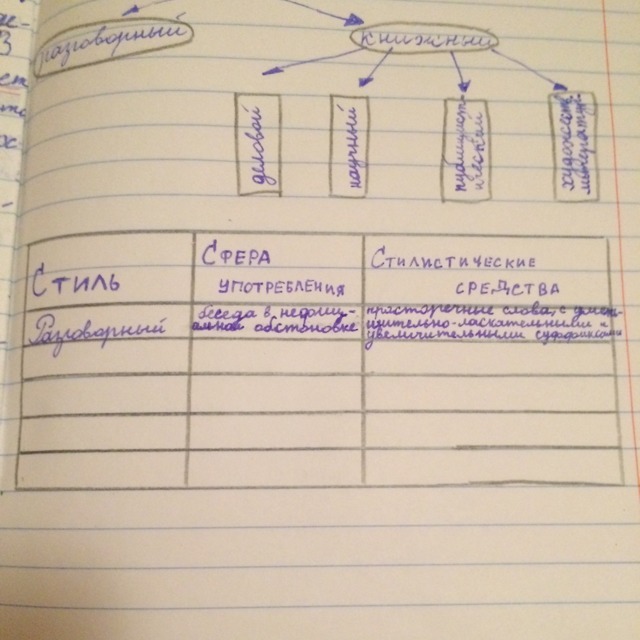 разговорный
книжный
деловой
научный
публицист-
ический
художест.
литератур-
Стиль
Сфера
употребления
Стилистические
средства
Разговорный
беседа в неофици-
альной обстановке
просторечные слова, с умень-
шительно-ласкательными и
увеличительными суффиксами